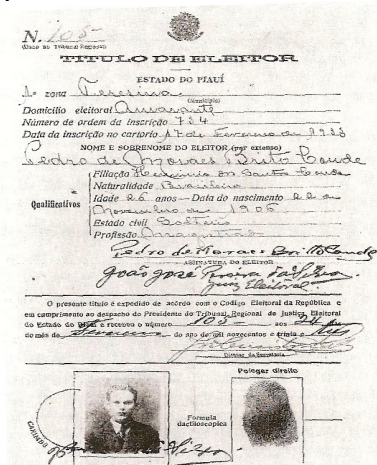 N. 105
TITULO DE ELEITOR
ESTADO DO PIAUÍ
1.ª zona Teresina
(Municipio)
Domicilio eleitoral Amarante
Número de ordem da inscrição 734
Data da inscrição no cartorio 17 de Fevereiro de 1933
NOME E SOBRENOME DO ELEITOR (por extenso)
Pedro de Moraes Britto Conde
Filiação dos Santos Conde
Naturalidade Brasileira
Qualificativos
Idade 26 anos—Data do nascimento 22 de
Novembro de 1906
Estado civil Solteiro
Profissão
Pedro de Moraes Britto Conde
ASSINATURA DO ELEITOR
João José Pereira da Silva
Juiz Eleitoral
O presente titulo é expedido de acôrdo com o Codigo Eleitoral da República e
em cumprimento ao despacho do Presidente do Tribunal Regional de Justiça Eleitoral
do Estado do Piauí e recebeu o número 105 aos 24
do mês de Fevereiro do ano de mil novecentos e trinta e três
Diretor da Secretaria
Polegar direito
Formula
dactiloscopica
CARIMBO